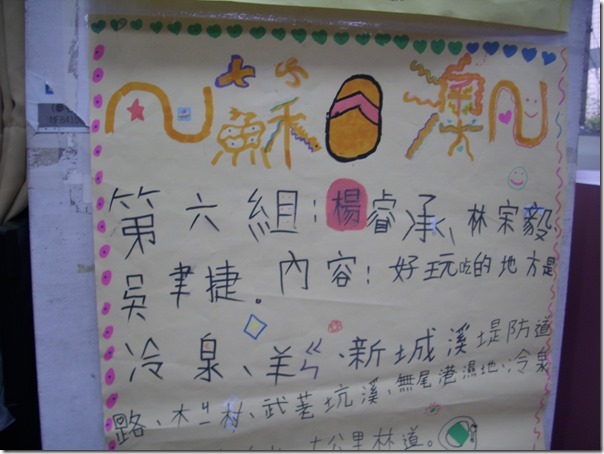 蘇澳
第六組:楊睿承、林宗毅
吳聿捷。內容:好玩吃的地方是
冷泉、羊ㄍ、新城溪堤防道
路、村、武荖坑溪、無尾港濕地、冷泉
公里林道。